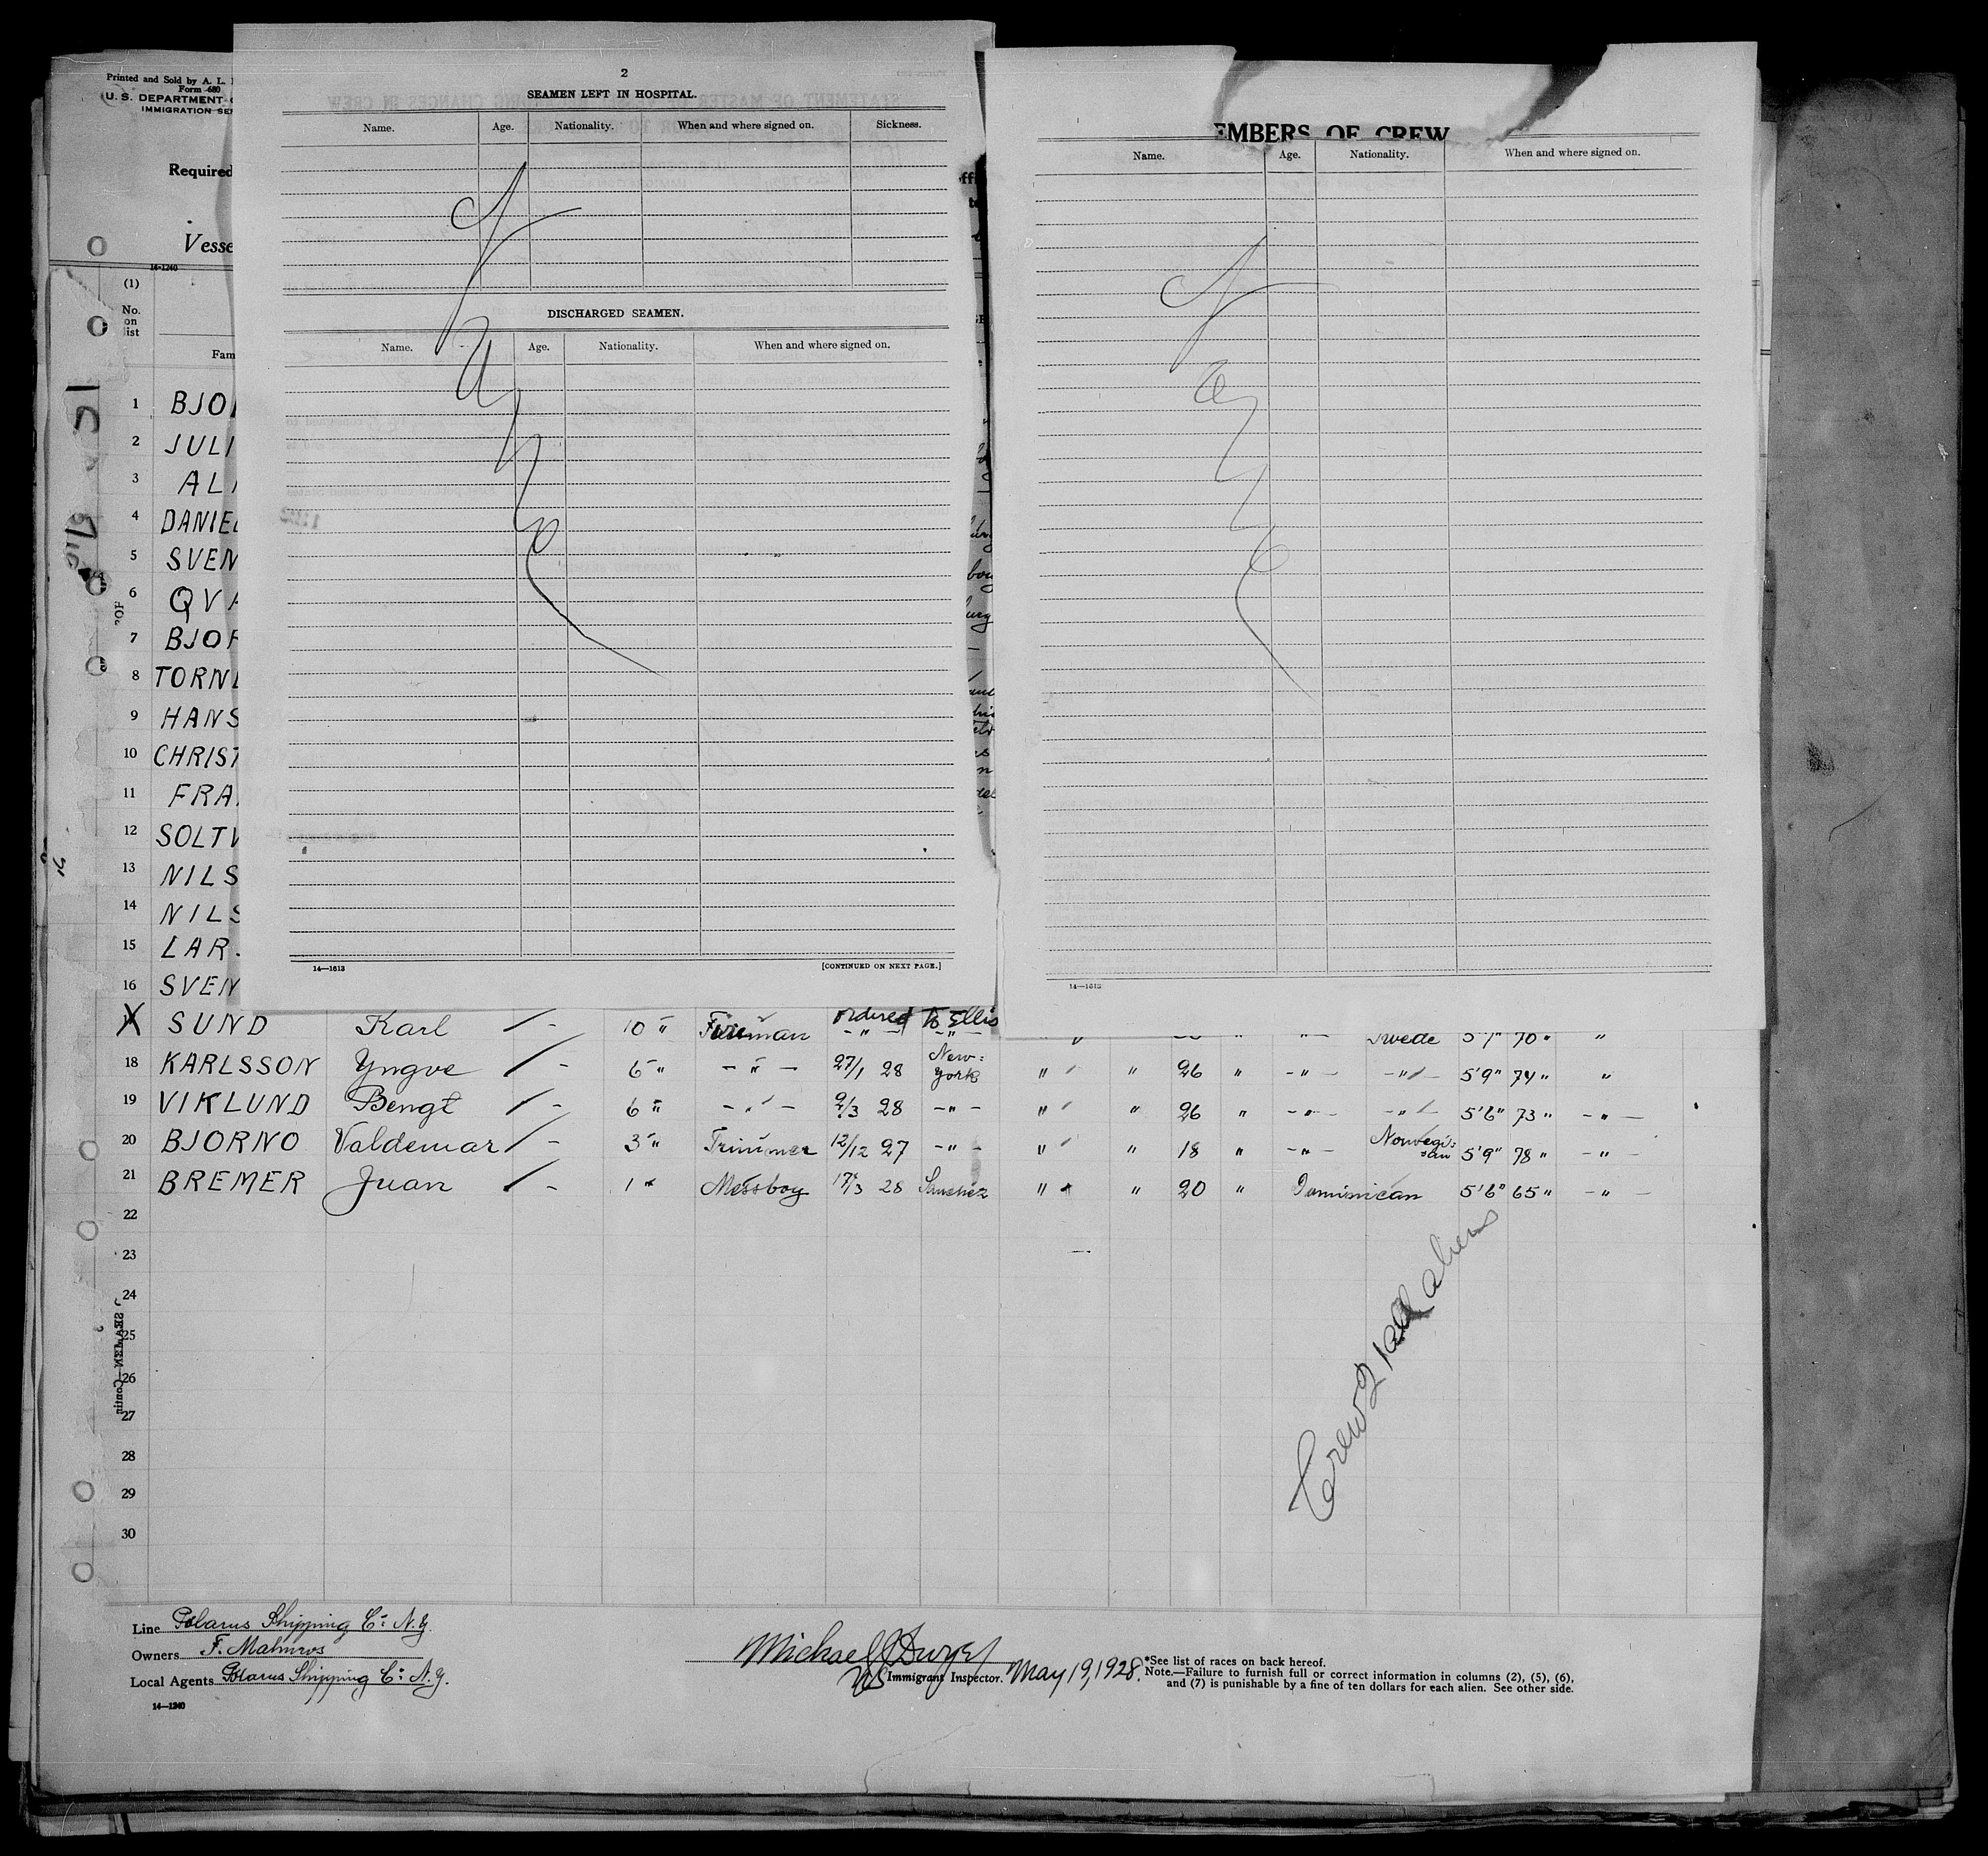 Printed and Sold by A. L.
Form 680
U. S. DEPARTMENT
IMMIGRATION SER
Required
Vesse
14-1240
(1)
No.
on
list
Fam
1 BJO
2 JULI
3 AL
4 DANIEL
5 SVEN
6 QVA
7 BJOR
8 TORN
9 HANS
10 CHRIST
11 FRA
12 SOLTV
13 NILS
14 NILS
15 LAR
16 SVEN
2
SEAMEN LEFT IN HOSPITAL.
Name. Age. Nationality. When and where signed on. Sickness.
DISCHARGED SEAMEN.
Name. Age. Nationality. When and where signed on.
14—1613 [CONTINUED ON NEXT PAGE.]
EMBERS OF CREW
Name. Age. Nationality. When and where signed on.
14—1613
ordered to Ellis
X SUND Karl 10 " Fireman -"- -"- Swede 5'7" 70 " "
18 KARLSSON Yngve 6 " -"- 27/1 28 New=york " " 26 " -"- -"- 5'9" 74 " "
19 VIKLUND Bengt 6 " -"- 9/3 28 -"- " " 26 " -"- -"- 5'6" 73 " -"-
20 BJORNO Valdemar 3 " Trimmer 12/12 27 -"- " " 18 " -"- Norwegi=an 5'9" 78 " -"-
21 BREMER Juan 1 " Messboy 17/3 28 Sanchez " " 20 " Dominican 5'6" 65 " -"-
22
23
24
25
26
27
28
29
30
Crew 21 all aliens
Line Polarus Shipping Co. N.Y.
Owners F. Malmros
Local Agents Polarus Shipping Co. N.Y.
14—1240
Michael J Dwyer
US Immigrant Inspector. May 19, 1928.
*See list of races on back hereof.
Note.—Failure to furnish full or correct information in columns (2), (5), (6),
and (7) is punishable by a fine of ten dollars for each alien. See other side.